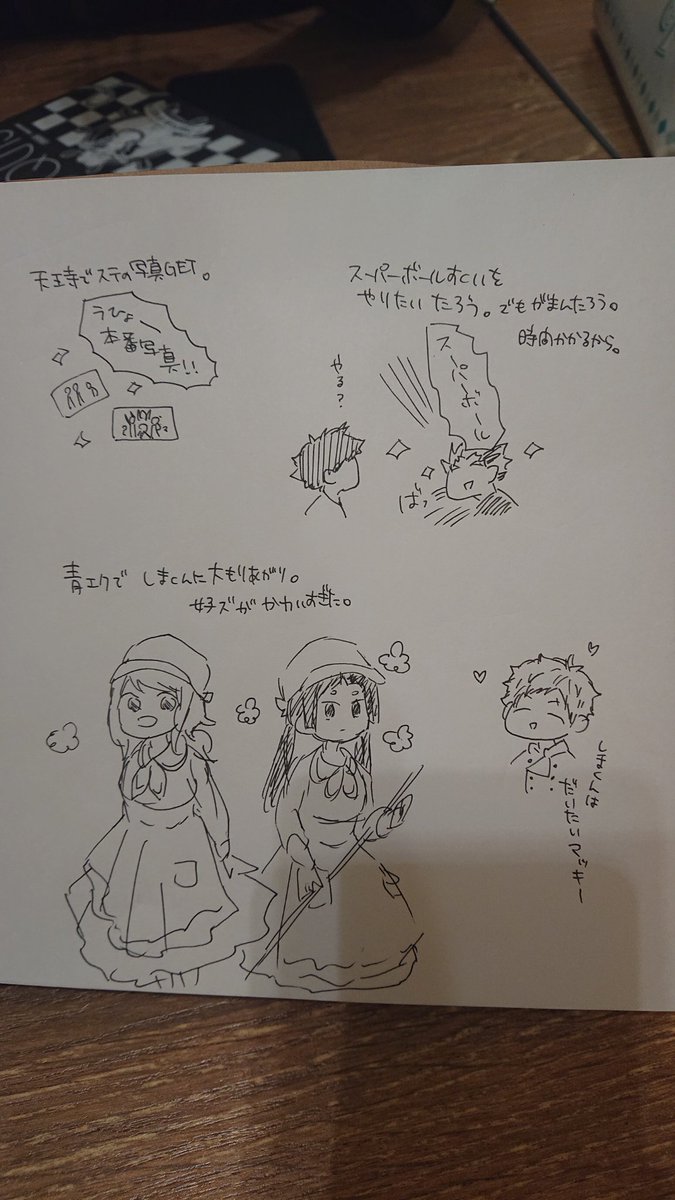 天王寺でステの写真GET。
うひょー
本番写真!!
スーパーボールすくいを
やりたい たろう。でもがまんたろう。
時間かかるから。
スーパーボール
やる?
ばっ
青エクで しまくんに大もりあがり。
女子ズがかわいすぎた。
しまくんは
だいたいマッキー